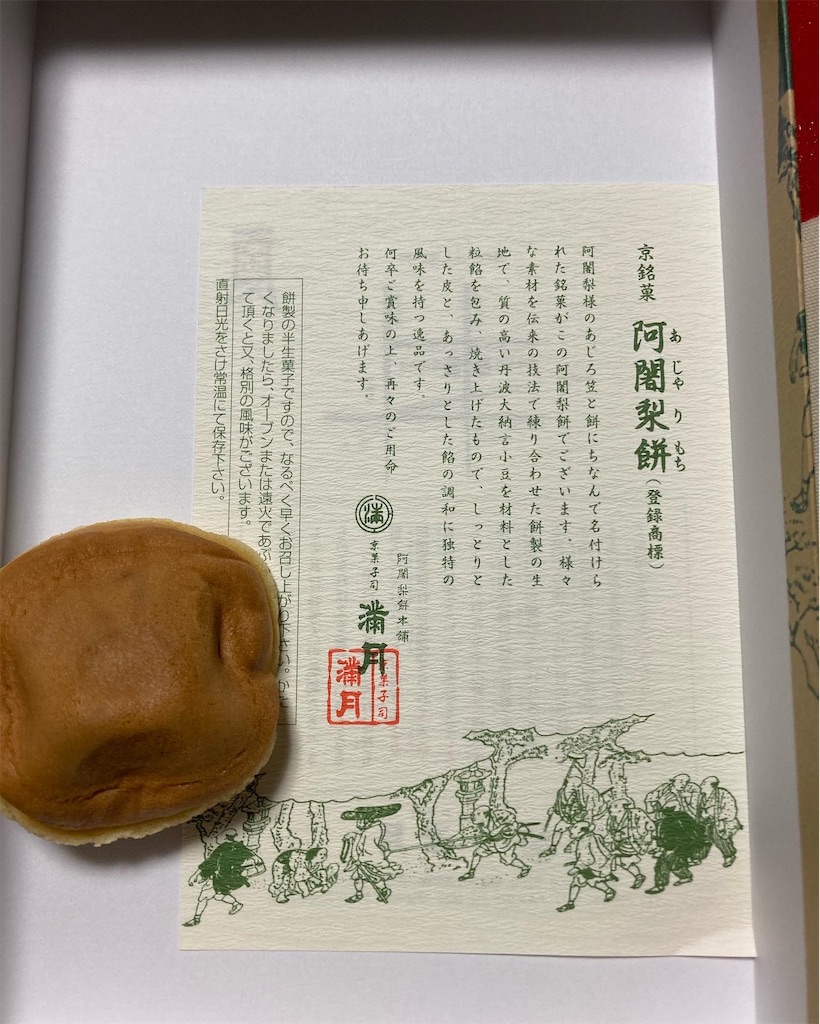 京銘菓 阿闍梨餅(登録商標)
あじゃりもち
阿闍梨様のあじろ笠と餅にちなんで名付けら
れた銘菓がこの阿闍梨餅でございます。様々
な素材を伝来の技法で練り合わせた餅製の生
地で、質の高い丹波大納言小豆を材料とした
粒餡を包み、焼き上げたもので、しっとりと
した皮と、あっさりとした餡の調和に独特の
風味を持つ逸品です。
何卒ご賞味の上、再々のご用命
お待ち申しあげます。
阿闍梨餅本舗
京菓子司 満月
満
京菓子司
満月
餅製の半生菓子ですので、なるべく早くお召し上がり下さい。かた
くなりましたら、オーブンまたは遠火であぶ
て頂くと又、格別の風味がございます。
直射日光をさけ常温にて保存下さい。